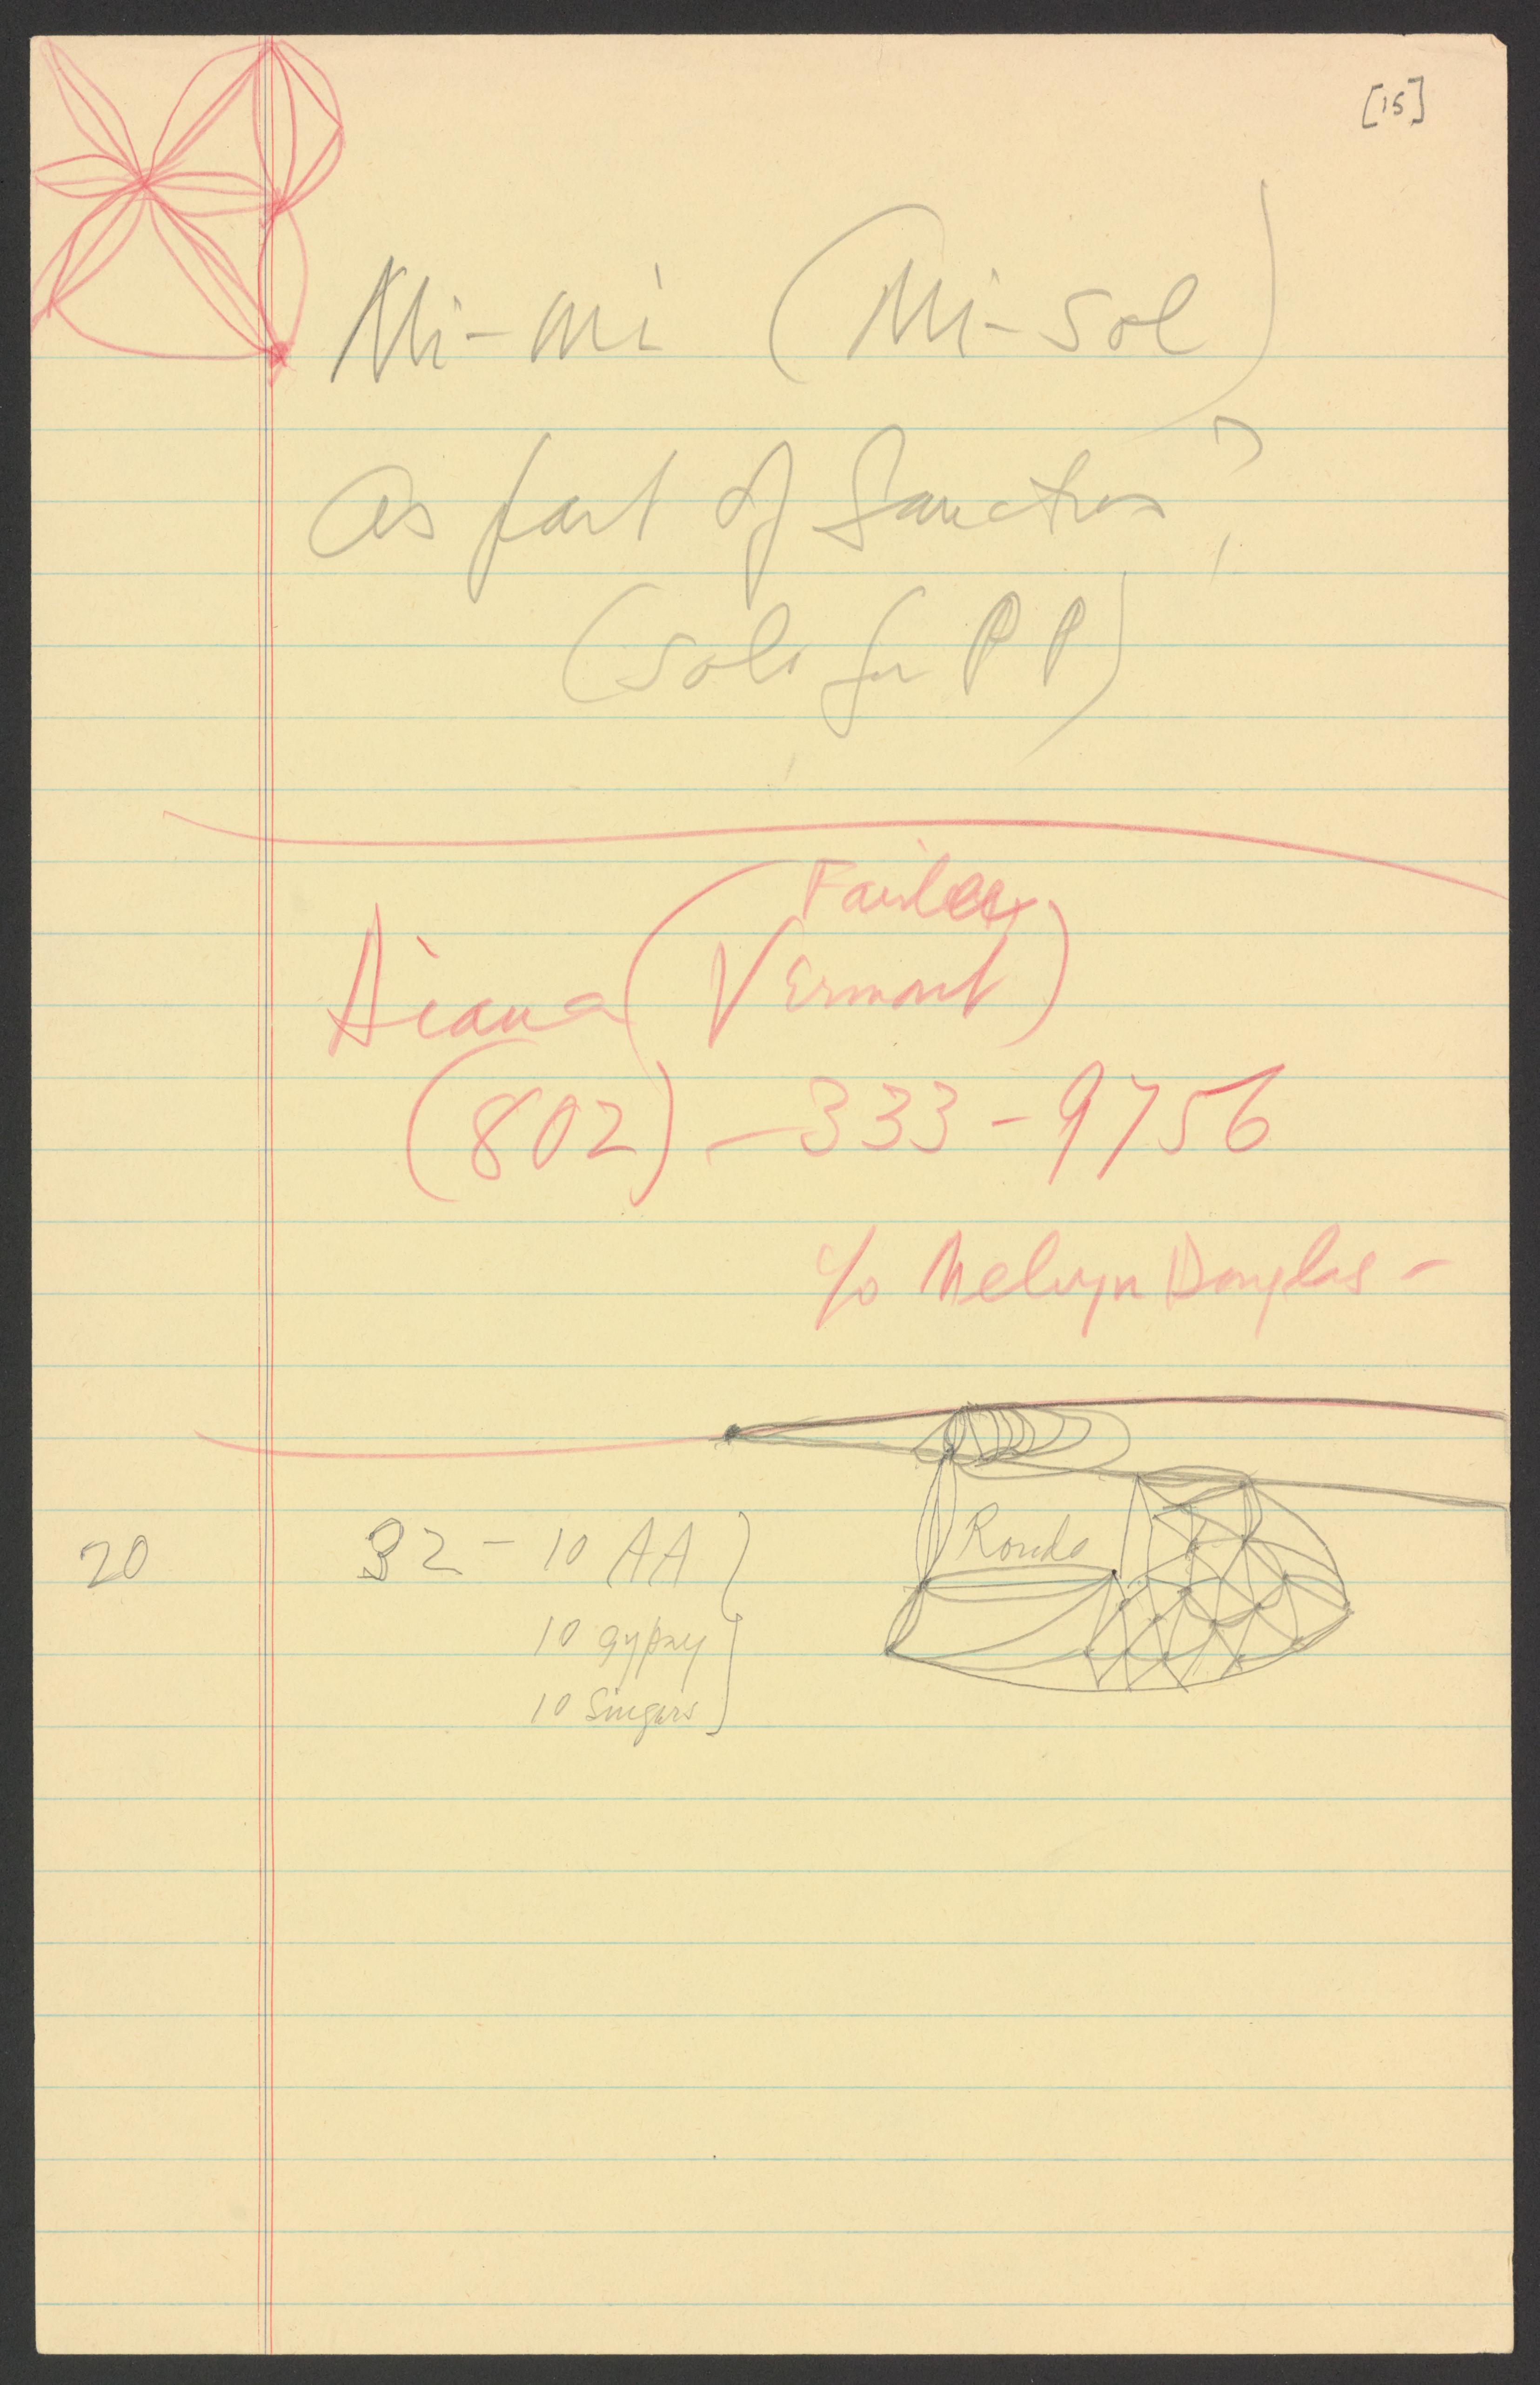 [15]
Mi-mi (Mi-sol)
as part of Sanctus?
(solo for PP)
Fairlee
Diana (Vermont)
(802) - 333 - 9756
c/o Melvyn Douglas -
20 32 - 10 AA }
Rondo
10 gypsy
10 Singers